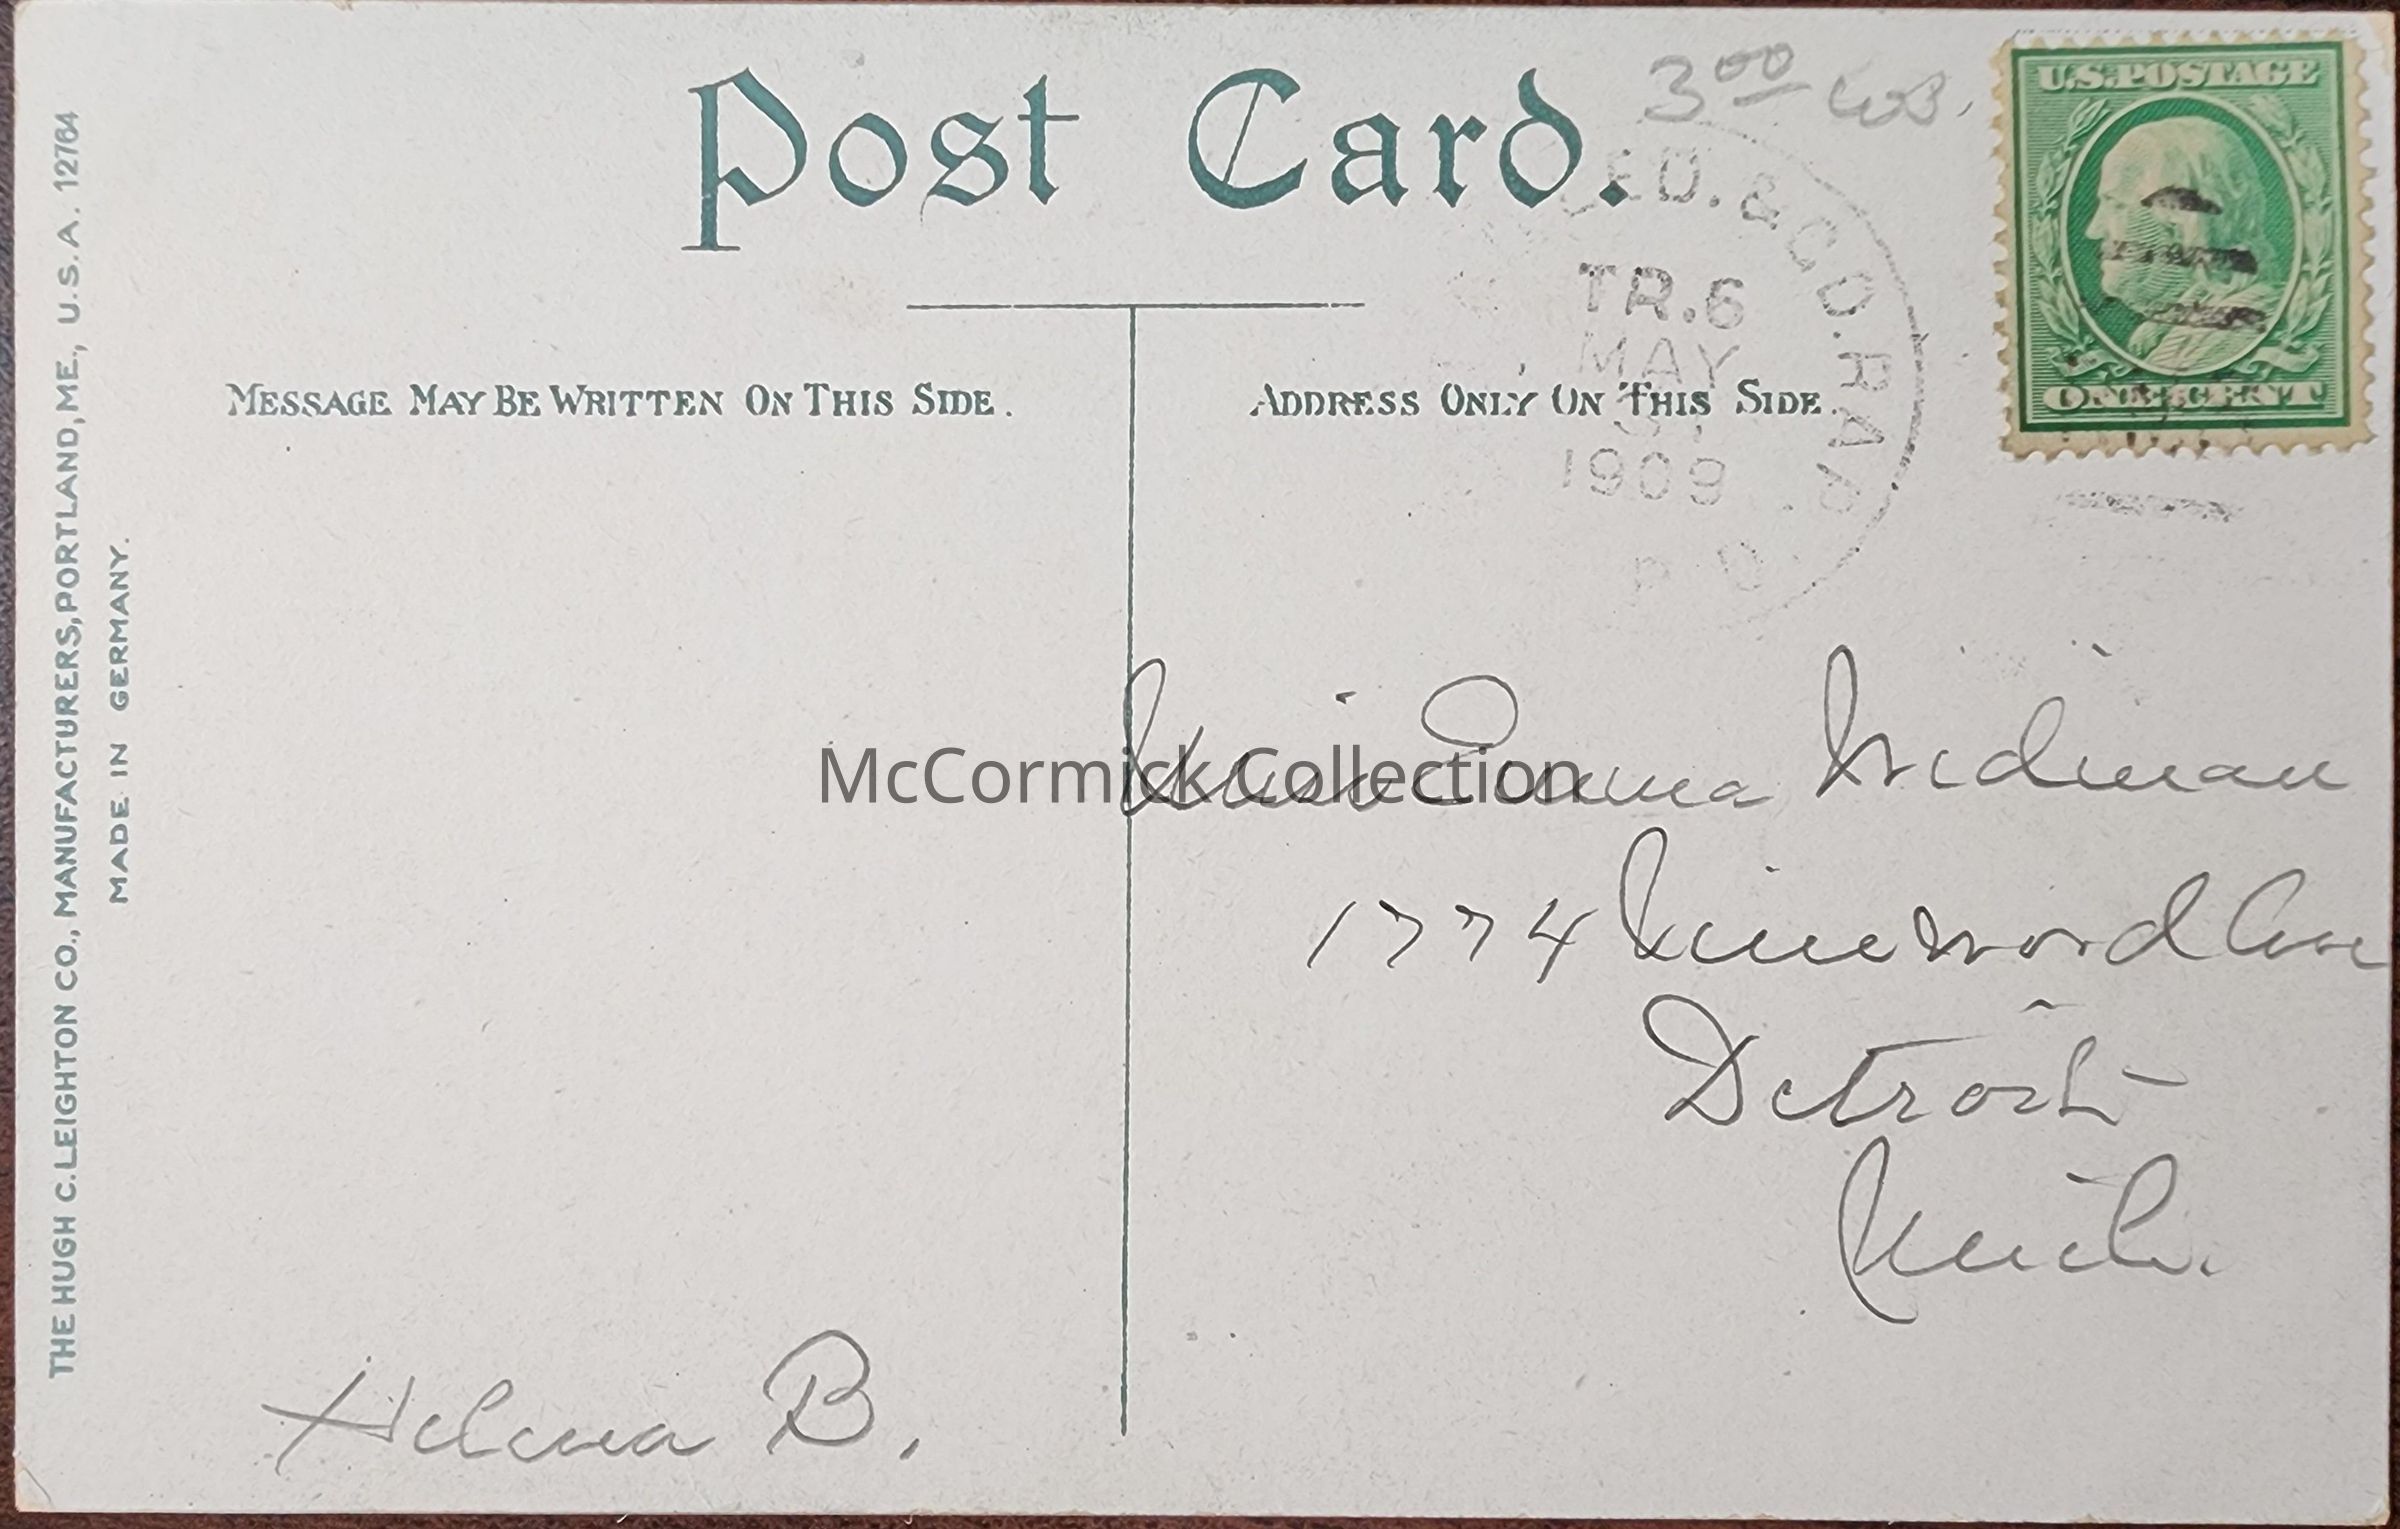 THE HUGH C. LEIGHTON CO., MANUFACTURERS, PORTLAND, ME., U.S.A. 12764
MADE IN GERMANY.
Post Card.
3 00
U.S. POSTAGE
ONE CENT
ED. & GD. RAP.
TR. 6
MAY
31
1909
R P O
MESSAGE MAY BE WRITTEN ON THIS SIDE.
ADDRESS ONLY ON THIS SIDE.
Miss Emma Widman
1774 Ave
Detroit
Mich.
Helena B.
McCormick Collection